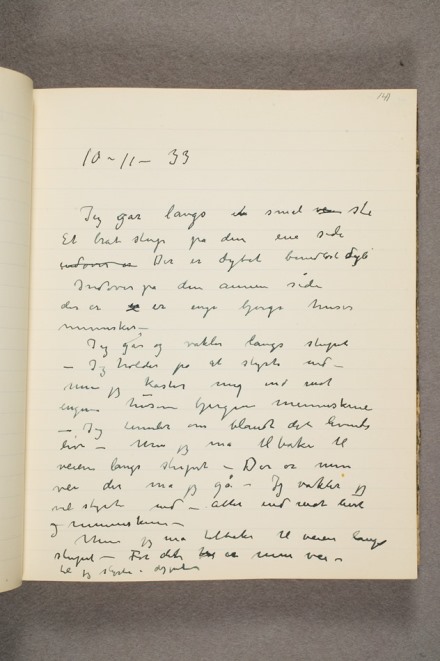 10-11-33
Jeg går langs et smal sti
Et brat stup på den ene side
Der er dybet bundløst dybt
Indover på den annen side
der er er enge bjerge huser
mennesker—
Jeg går og vakler langs stupet
— Jeg holder på at styrte ned—
men jeg kaster mig ind mot
engene husene bjergene menneskene
— Jeg om blandt det livs
liv — Men jeg må tilbake til
veien langs stupet — Der er min
vei der må jeg gå — Jeg vakler jeg
vil styrte ned — atter ind mot livet
og menneskene —
Men jeg må tilbake til veien langs
stupet — For det er min vei —
til jeg styrter i dypet